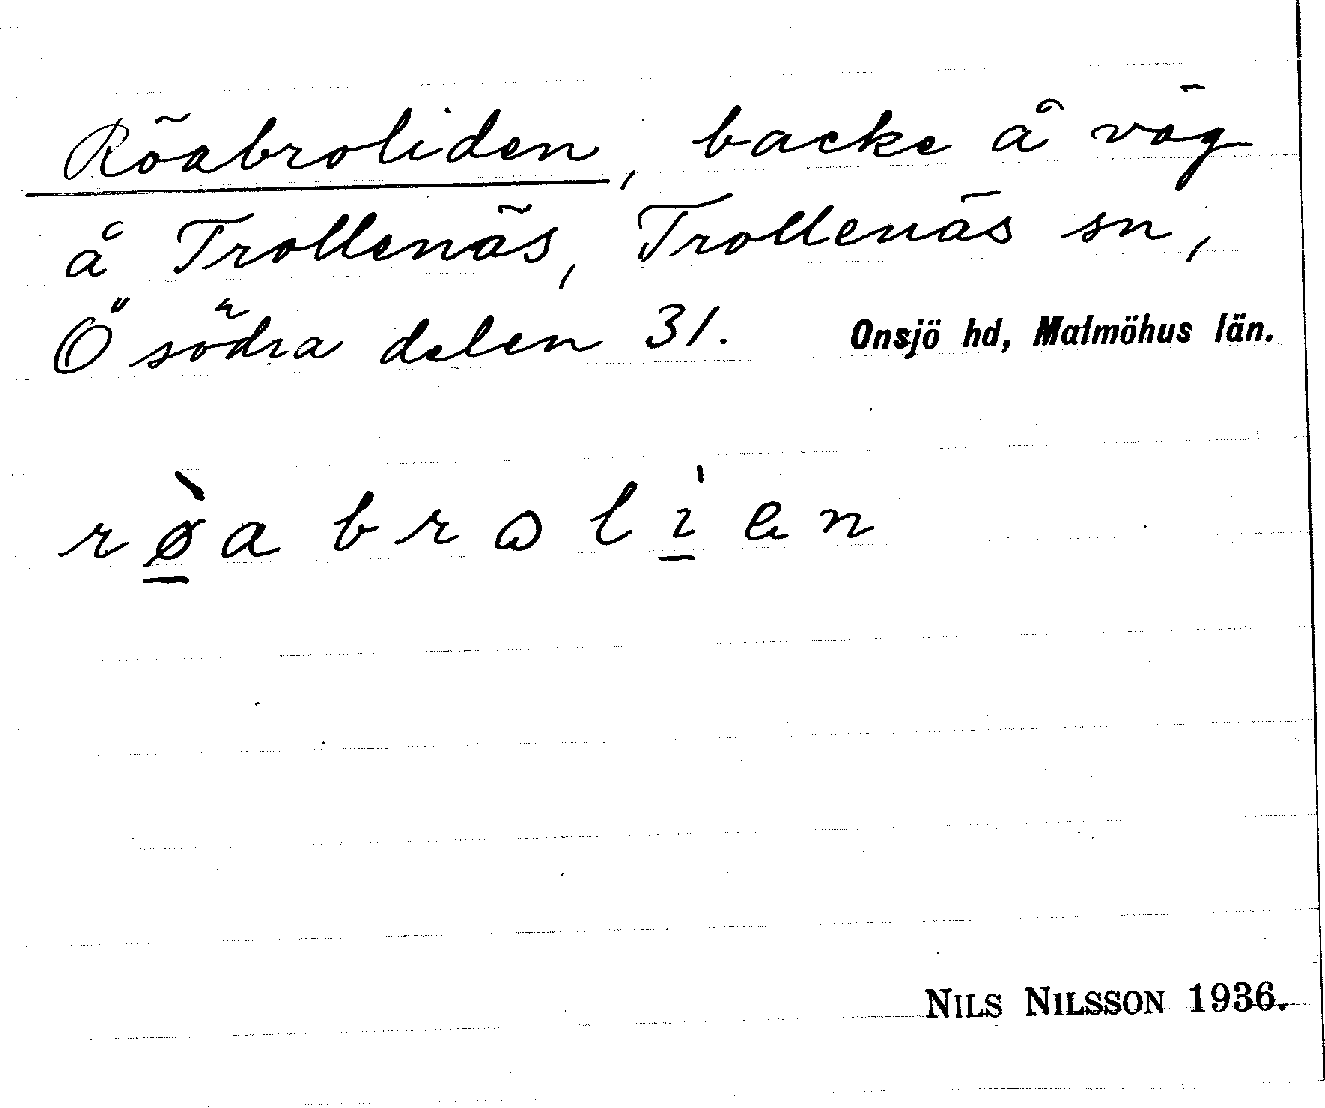 Röabroliden, backe å väg
å Trollenäs, Trollenäs sn,
Ö södra delen 31. Onsjö hd, Malmöhus län.
rø̀abrolìen
NILS NILSSON 1936.